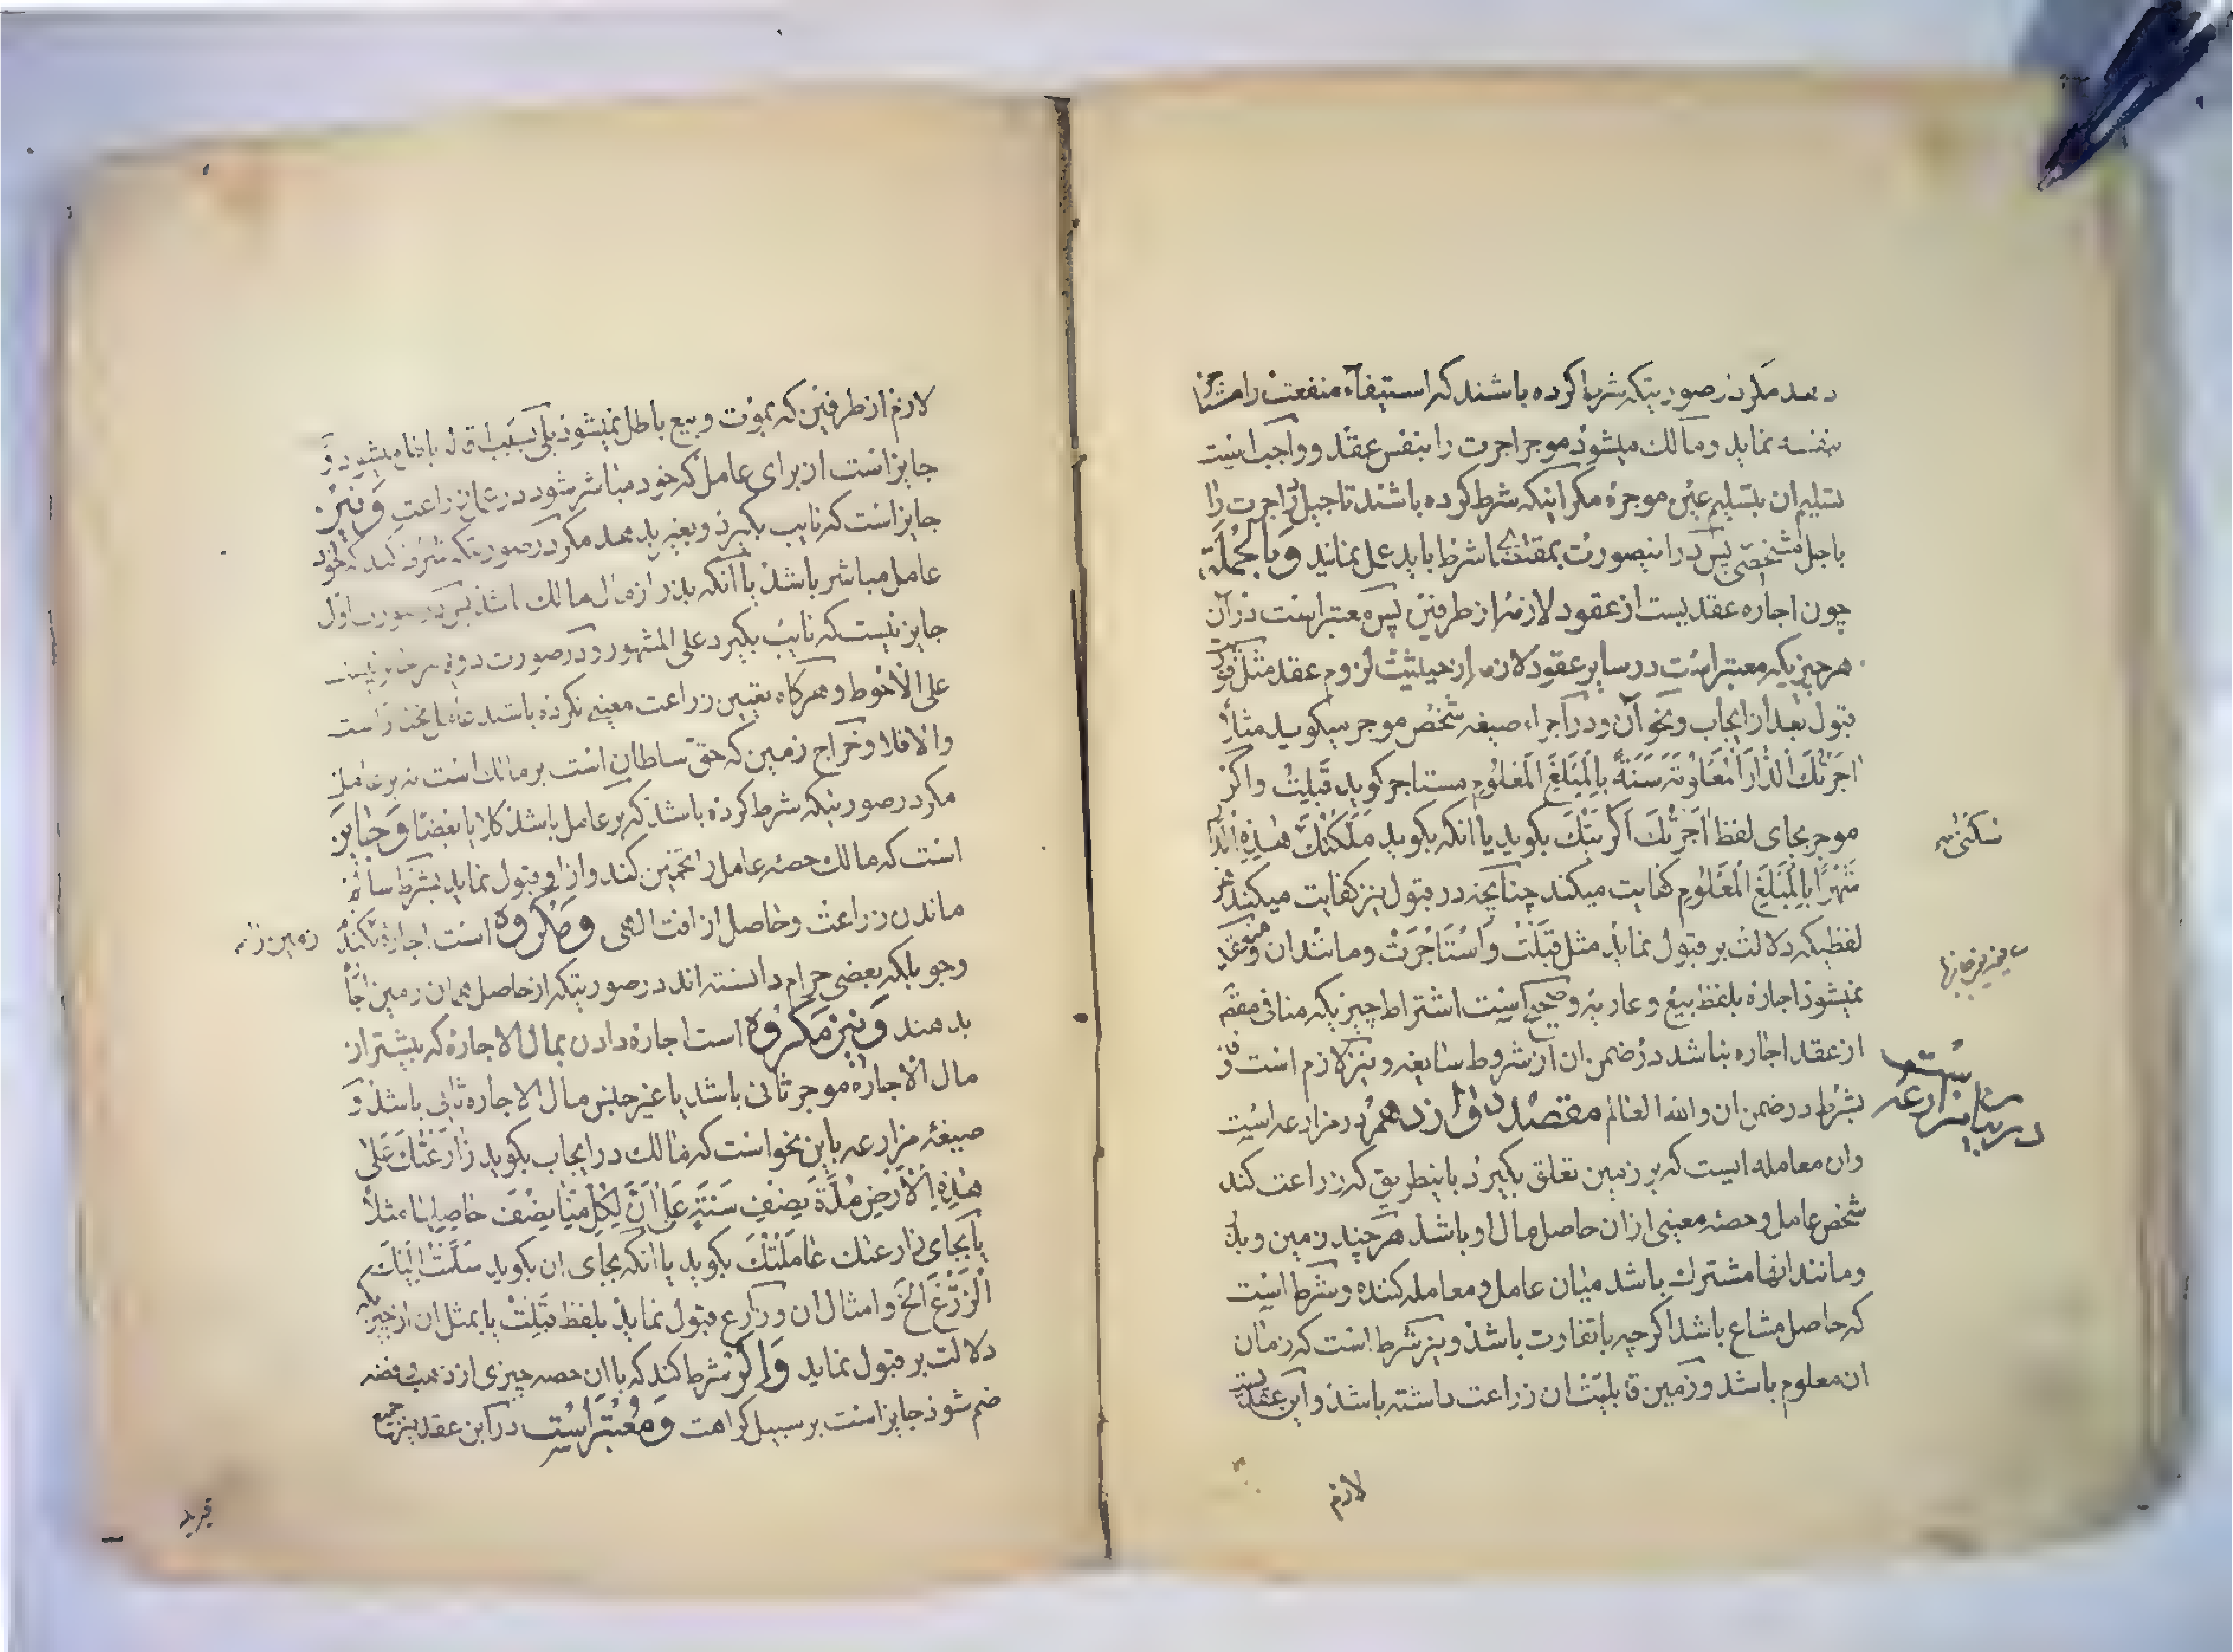 دهد مکر در صورتیکه شرط کرده باشند که استیفاء منفعت را مستاجر
بنفسه نماید و مالک میشود موجر اجرت را بنفس عقد و واجب است
تسلیم ان بتسلیم عین موجره مکر اینکه شرط کرده باشند تاجیل اجرت را
باجل مشخصی پس در اینصورت بمقتضای شرط باید عمل نمایند وبالجمله
چون اجاره عقدیست از عقود لازمه از طرفین پس معتبر است در آن
هر چیزیکه معتبر است در سایر عقود لازمه از حیثیت لزوم عقد مثل
قبول بعد از ایجاب و نحو آن و در اجراء صیغه شخص موجر میکوید مثلاً
اجَرْتُكَ الدّارَ المَعْلُومَة سَنَةً بِالْمَبْلَغِ الْمَعْلُومِ مستاجر کوید قَبِلْتُ واکر
موجر بجای لفظ اجَرْتُكَ اَکْرَیْتُكَ بکوید یا انکه بکوید مَلَّکْتُكَ
شَهْرًا بِالْمَبْلَغِ الْمَعْلُومِ کفایت میکند چنانچه در قبول نیز کفایت میکند هر
لفظیکه دلالت بر قبول نماید مثل قَبِلْتُ وَاسْتَأْجَرْتُ و مانند ان و منعقد
نمیشود اجاره بلفظ بیع و عاریه و صحیح است اشتراط چیزیکه منافی مقتضی
از عقد اجاره نباشد در ضمن ان از شروط سایغه و نیز لازم است
بشرط در ضمن ان والله العالم مقصد دوازدهم در مزارعه است
وان معامله ایست که بر زمین تعلق بکیرد باینطریق که زراعت کند
شخص عامل و حصه معینی از ان حاصل مال او باشد هر چند زمین و بذر
و مانند انها مشترك باشد میان عامل و معامله کننده و شرط است
که حاصل مشاع باشد اکرچه با تفاوت باشد و نیز شرط است که زمان
ان معلوم باشد و زمین قابلیّت ان زراعت داشته باشد و این عقدیست
در بیان مزارعه
لازم
لازم از طرفین که بموت و بیع باطل نمیشود بلی بسبب اقاله باطل میشود و
جایز است از برای عامل که خود مباشر شود در عمل زراعت وَنیز
جایز است که نایب بکیرد و بغیر بدهد مکر در صورتیکه شرط کند که خود
عامل مباشر باشد یا آنکه بذر از مال مالك باشد پس در صورت اول
جایز نیست که نایب بکیرد علی المشهور و در صورت دویم جایز نیست
علی الاحوط و هرکاه تعیین زراعت معینی نکرده باشند عامل مخیر است
والا فلا و خراج زمین که حقّ سلطان است بر مالك است نه بر عامل
مکر در صورتیکه شرط کرده باشد که بر عامل باشد کلاً یا بعضاً وَجایز
است که مالك حصه عامل را تخمین کند و از او قبول نماید بشرط سالم
ماندن زراعت و حاصل از افت الهی ومکروه است اجاره
وجو بلکه بعضی حرام دانسته اند در صورتیکه از حاصل همان زمین
بدهند وَنیز مَکرُوه است اجاره دادن بمال الاجاره که بیشتر از
مال الاجاره موجر ثانی باشد یا غیر جنس مال الاجاره ثانی باشد و
صیغه مزارعه باین نحو است که مالك در ایجاب بکوید زارَعْتُكَ عَلی
هٰذِهِ الْاَرْضِ مُدَّةَ نِصْفِ سَنَةٍ عَلی اَنَّ لِکُلٍّ مِنّا نِصْفَ حاصِلِها مثلاً
یا بجای زارعتك عامَلْتُكَ بکوید یا انکه بجای ان بکوید سَلَّمْتُ اِلَیْكَ
الْزَرْعَ الخ و امثال ان و زارع قبول نماید بلفظ قَبِلْتُ یا بمثل ان از چیزیکه
دلالت بر قبول نماید وَاکر شرط کند که با ان حصه چیزی از ذهب و فضه
ضم شود جایز است بر سبیل کراهت وَمُعْتَبَر اَسْت در این عقد نیز جمیع